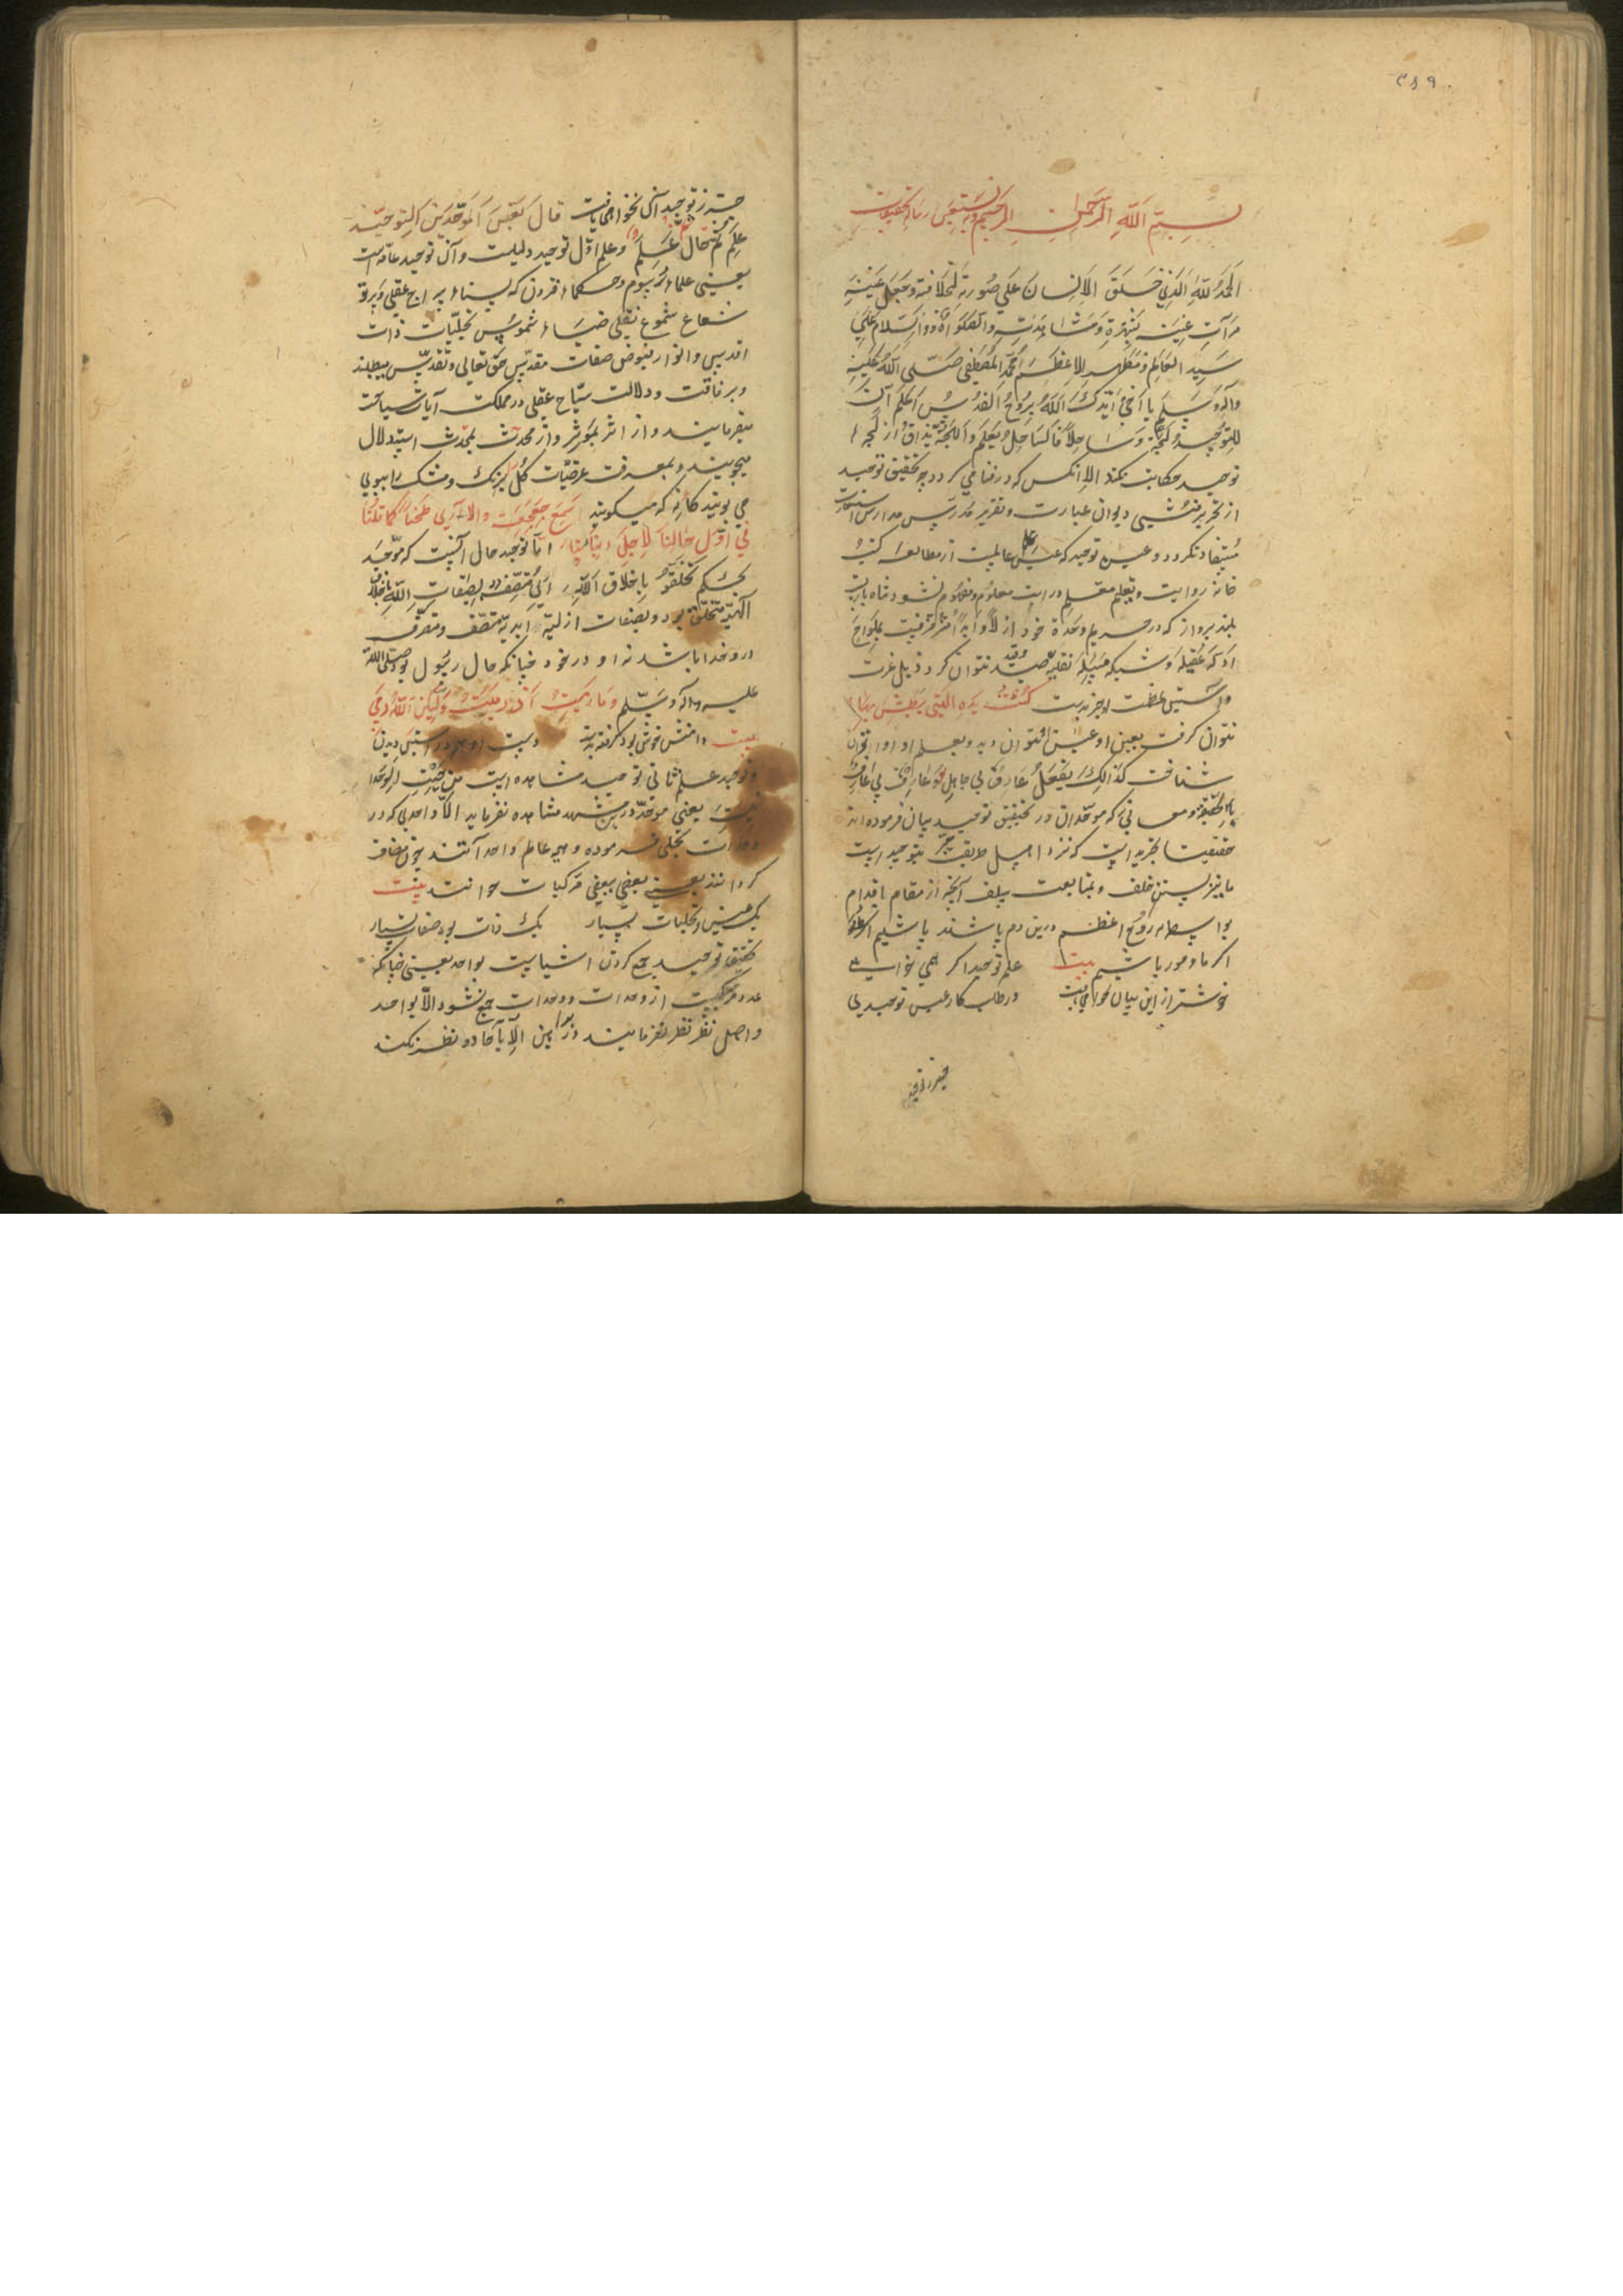 ۳۸۹
بسم الله الرحمن الرحیم وبه نستعین رساله تحقیقات
الحمد لله الذی خلق الانسان علی صورته لخلافته وجعل عینه
مرآت عینه مشاهدته والصلواة والسلام علی
سید العالم ومظهر الاعظم محمد المصطفی صلی الله علیه
وآله وسلم یا اخی ایدک الله بروح القدس اعلم ان
للتوحید لجة وساحلا فالساحل یعلم واللجة یذاق از لجه
توحید حکایت نکند الا انکس که در فنا می کردد چه تحقیق توحید
از تحریر منشی دیوان عبارت وتقریر مدرس مدارس
مستفاد نکردد و توحید که از مطالعه کتب
خانه روایت وبتعلیم معلم درایت معلوم ومفهوم نشود
بلند پرواز که در حریم وحدة خود ازلا وابدا
وشبکه نقلیه صید نتوان کرد ذیل عزت
وآستین عظمت او جز بدست کنت یده التی یبطش بها
نتوان کرفت بعین او عین او نتوان دید وبعلم او او را نتوان
شناخت کذالک یفعل عارف بی جاهل
ومعانی که موحدان در تحقیق توحید بیان فرموده اند
که نزد اهل طریقت توحید است
ما نیز بسنن خلف وبمتابعت سلف آنچه از مقام اقدام
بواسطه روح اعظم درین دم
اکر مامور باشیم بیت علم توحید اکر همی خواهی
خوشتر از این بیان نخواهی یافت در طلب کار عین توحیدی
جز ز توحید آن نخواهی یافت قال بعض الموحدین التوحید
علم ثم حال ثم علم وعلم اول توحید دلیلست وآن توحید عامه است
یعنی علماء رسوم وحکماء قرون که بسناء سراج عقلی وبرق
شعاع شموع نقلی ضیاء شموس تجلیات ذات
اقدس وانوار فیوض صفات مقدس حق تعالی وتقدس میطلبند
وبرفاقت ودلالت سیاح عقلی در مملکت آیات سیاحت
میفرمایند و از اثر بموثر و از محدث بمحدث استدلال
میجویند وبمعرفت عرضیات کل بیرنک ومشک را ببوی
می بویند که میکویند اسمع جعجعة ولا اری طحنا کما قلنا
فی اول حالنا لاجل دینار اما توحید حال آنست که موحد
بحکم تخلقوا باخلاق الله ای متصفة بصفات الله باخلاق
الهیه متخلق بود وبصفات ازلیه ابدیه متصف ومتصرف
در و خدا باشد نه او در خود چنانکه حال رسول بود صلی الله
علیه وآله وسلم وما رمیت اذ رمیت ولکن الله رمی
بیت دامنش خوش بود کرفته بدست دست او هم در آستین دیدن
وتوحید علم ثانی توحید مشاهده است من حیث الوحد
نیت یعنی موحد درین مشهد مشاهده نفرماید الا واحدی که در
وحدات تجلی فرموده وهی عالم واحد آنند چون مضاف
کردانند یعنی بعضی ببعضی مرکبات خوانند بیت
یک عین وتجلیات بسیار یک ذات بود صفات بسیار
تحقیق توحید جمع کردن اشیاست بواحد یعنی چنانکه
عدد مرکبیت از وحدات ووحدات جمع نشود الا بواحد
واصل نظر نظر نفرمایند الا بآحاد و نظر نکنند